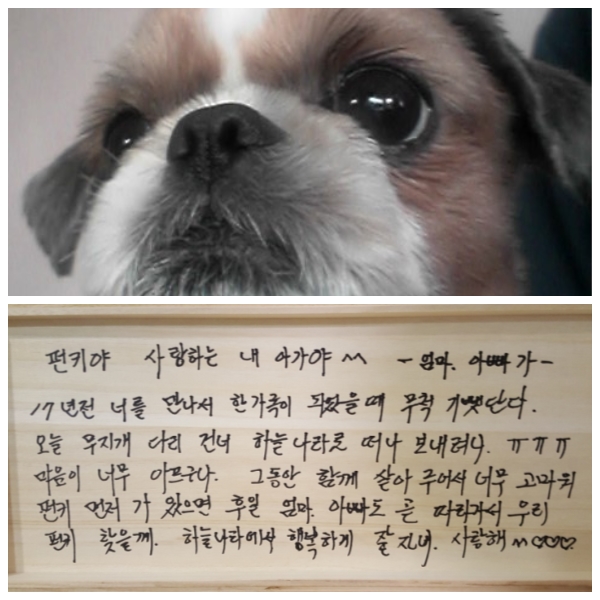 펀키야 사랑하는 내 아가야 ^^ - 엄마. 아빠가 -
17년전 너를 만나서 한가족이 되었을때 무척 기뻤단다.
오늘 무지개 다리 건너 하늘나라로 떠나 보내려니. ㅠㅠㅠ
마음이 너무 아프구나. 그동안 함께 살아 주어서 너무 고마워
펀키 먼저 가 있으면 후일 엄마. 아빠도 곧 따라가서 우리
펀키 찾을께. 하늘나라에서 행복하게 잘 지내. 사랑해 ^^♡♡♡